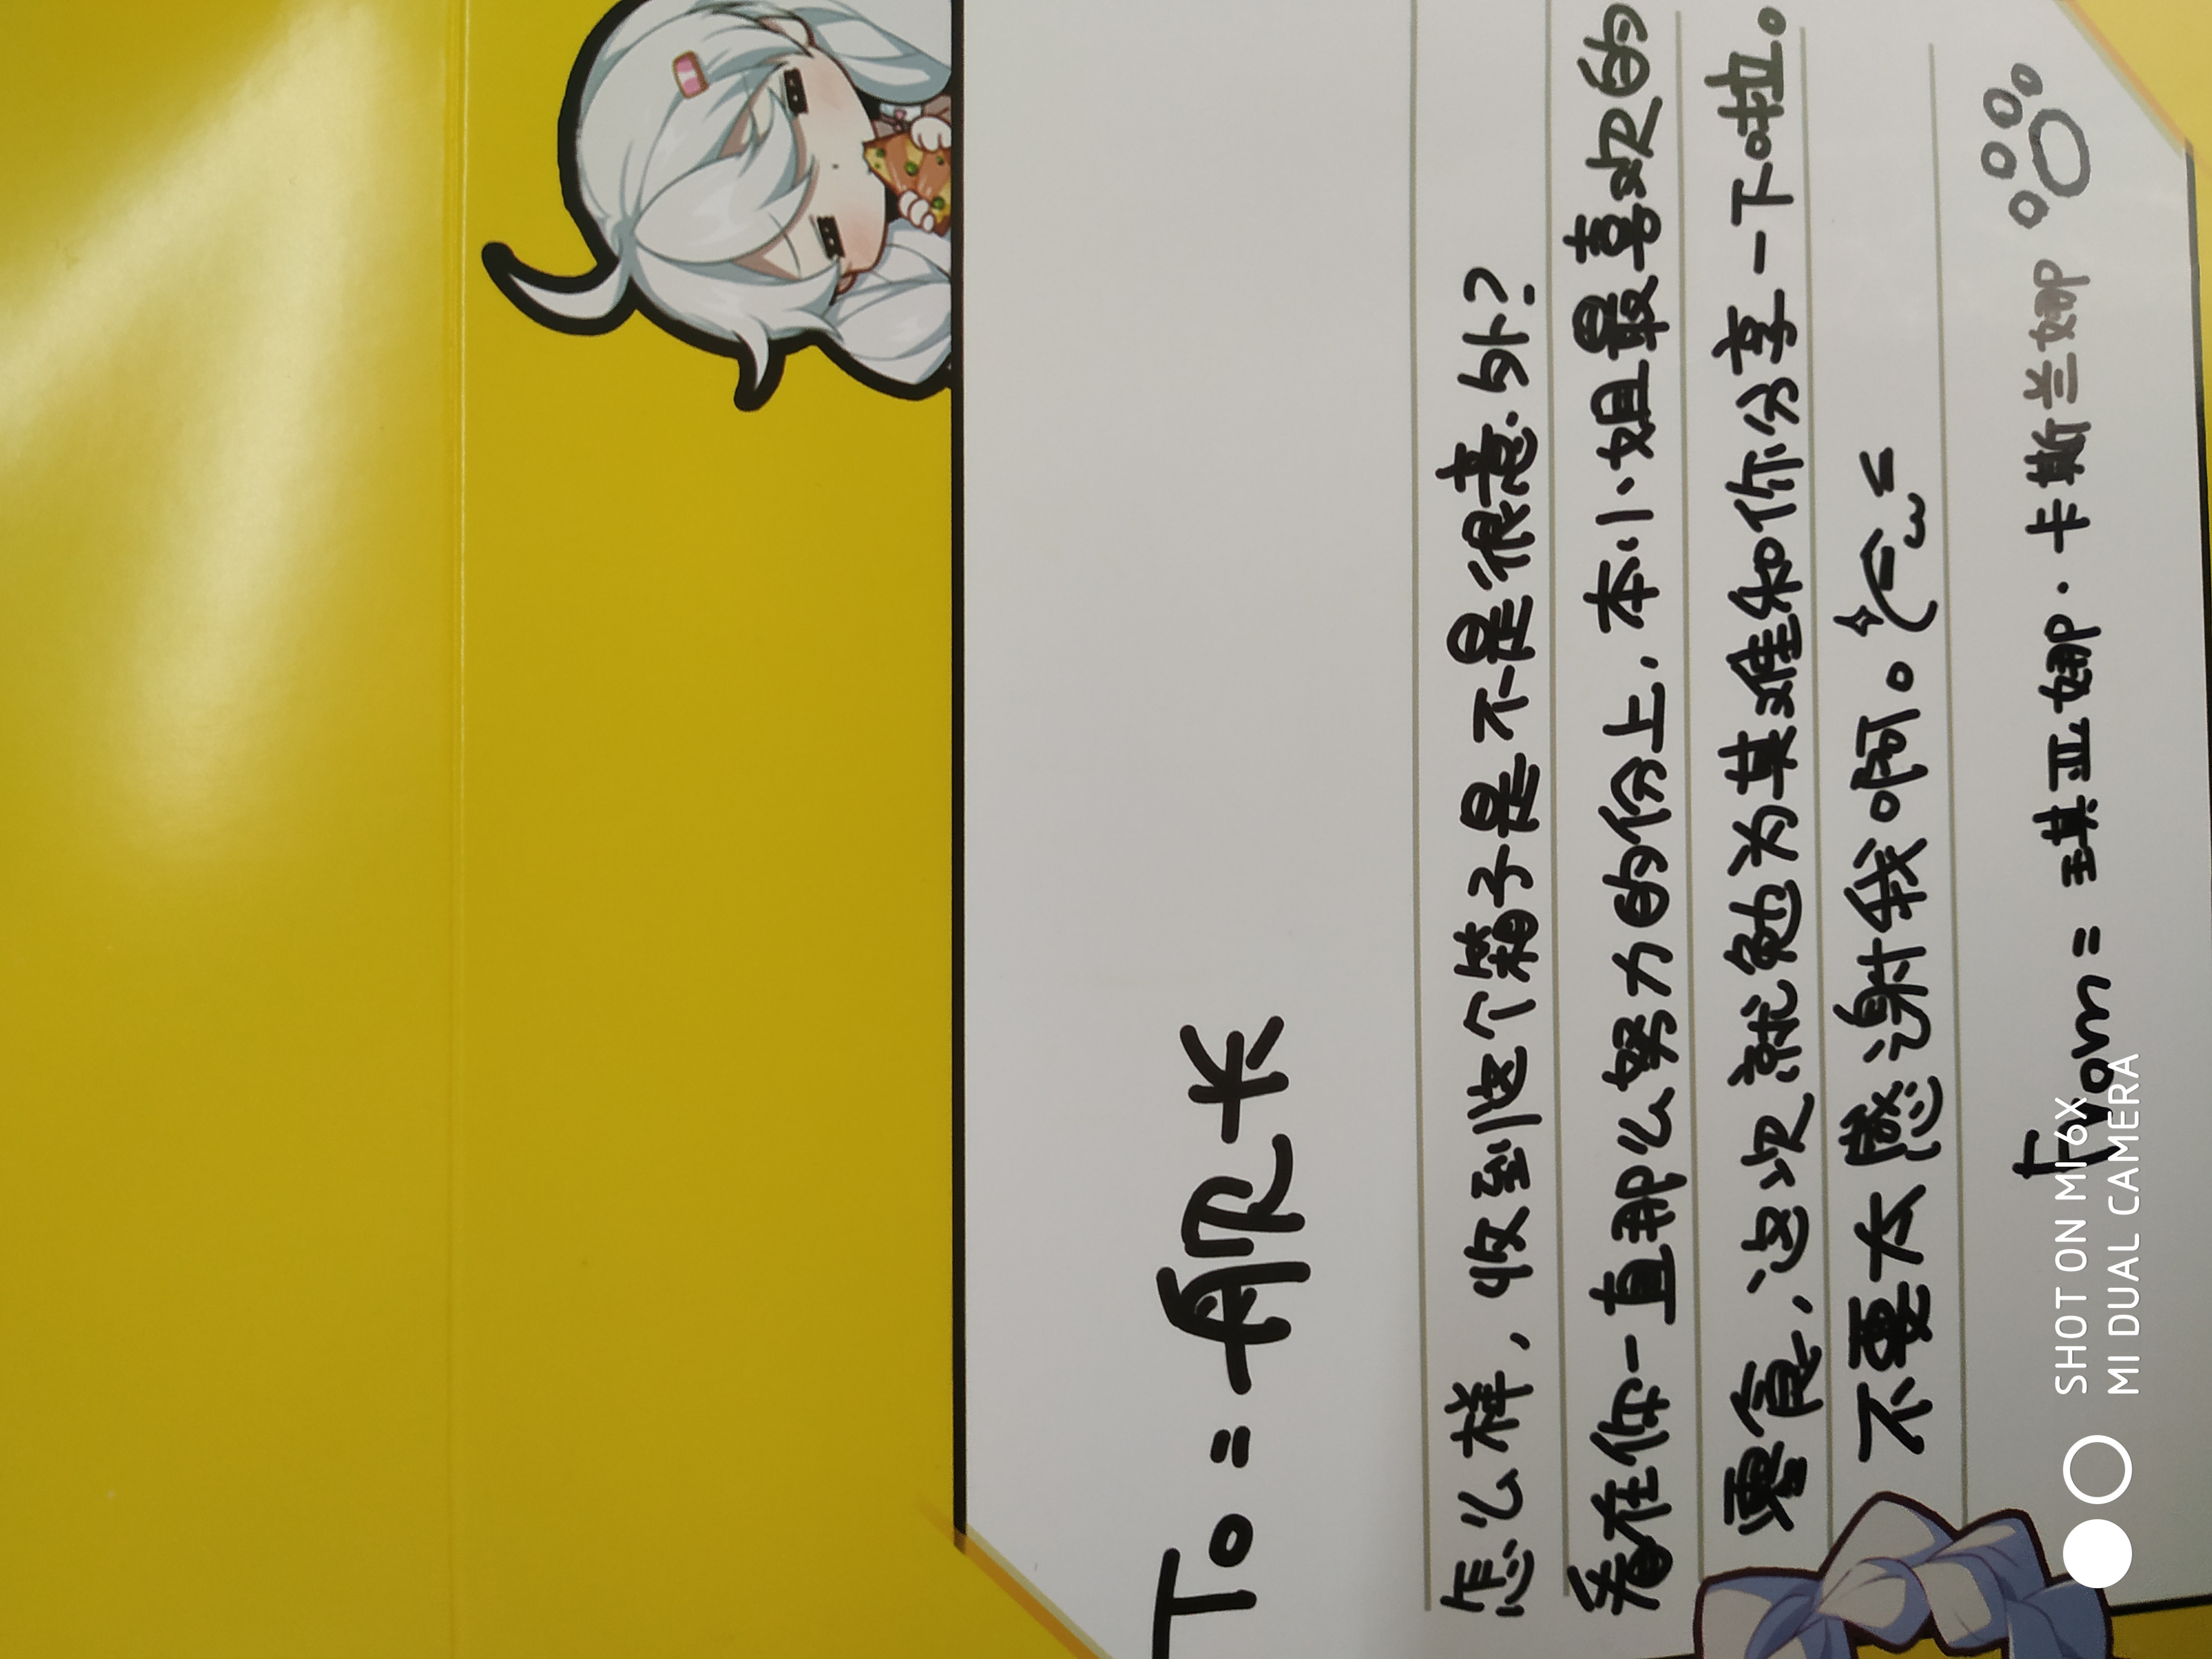 To = 舰长
怎么样，收到这个箱子是不是很意外？
看在你一直那么努力的份上，本小姐最喜欢的
零食，这次就勉为其难和你分享一下啦。
不要太感谢我啊。
From = 琪亚娜·卡斯兰娜
SHOT ON MI 6X
MI DUAL CAMERA